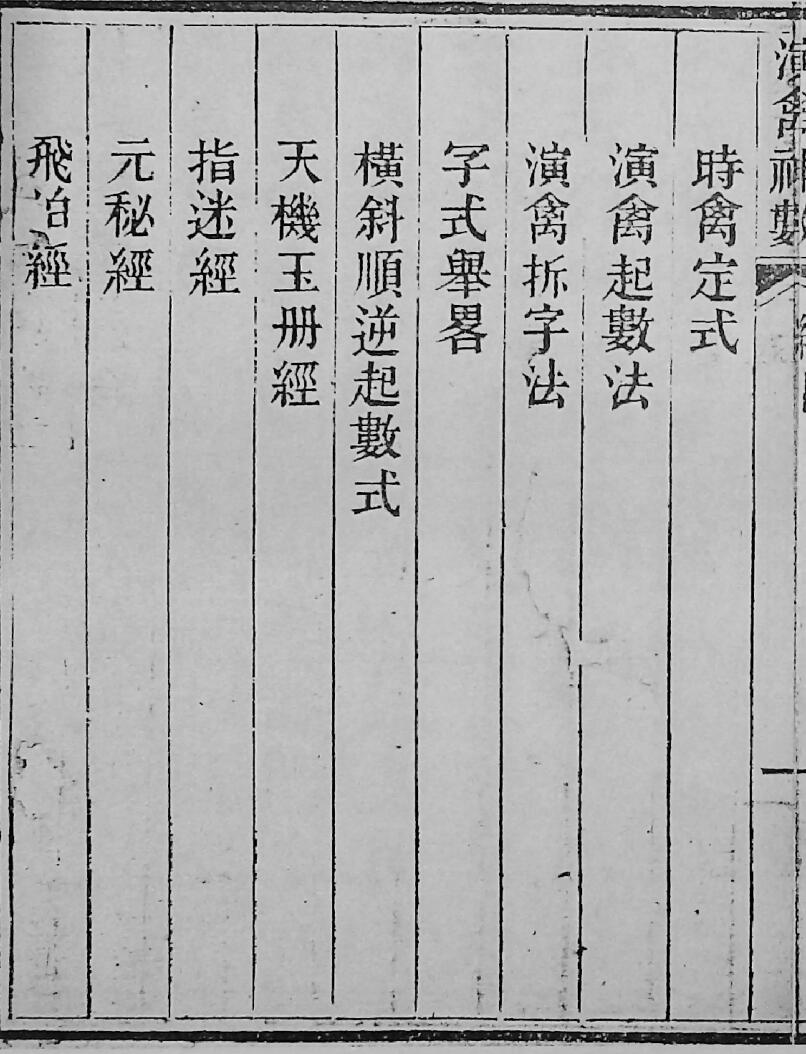 演禽神數
一
時禽定式
演禽起數法
演禽拆字法
字式舉畧
橫斜順逆起數式
天機玉册經
指迷經
元秘經
飛冶經